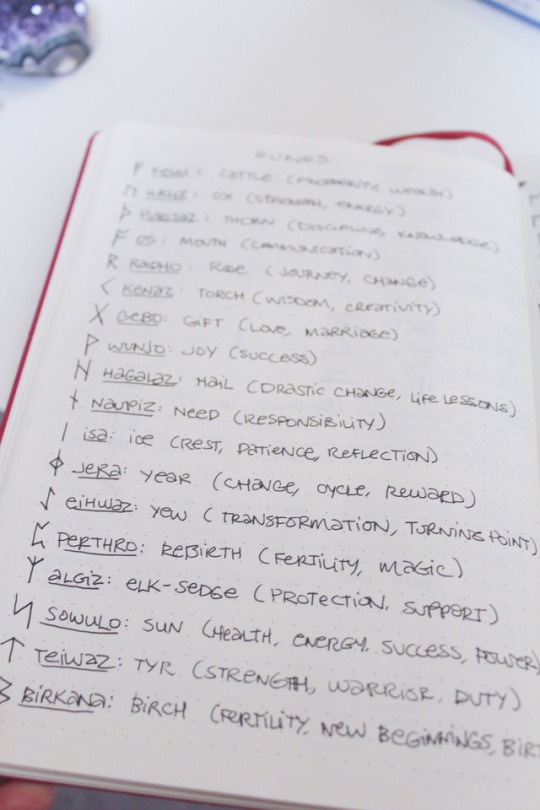 RUNES
ᚠ FEHU: CATTLE (PROSPERITY, WEALTH)
ᚢ URUZ: OX (STRENGTH, ENERGY)
ᚦ THORN (DISCIPLINE, KNOWLEDGE)
ᚨ OS: MOUTH (COMMUNICATION)
ᚱ RAIDHO: RIDE (JOURNEY, CHANGE)
ᚲ KENAZ: TORCH (WISDOM, CREATIVITY)
ᚷ GEBO: GIFT (LOVE, MARRIAGE)
ᚹ WUNJO: JOY (SUCCESS)
ᚺ HAGALAZ: HAIL (DRASTIC CHANGE, LIFE LESSONS)
ᚾ NAUPIZ: NEED (RESPONSIBILITY)
ᛁ ISA: ICE (REST, PATIENCE, REFLECTION)
ᛄ JERA: YEAR (CHANGE, CYCLE, REWARD)
ᛇ EIHWAZ: YEW (TRANSFORMATION, TURNING POINT)
ᛈ PERTHRO: REBIRTH (FERTILITY, MAGIC)
ᛉ ALGIZ: ELK-SEDGE (PROTECTION, SUPPORT)
ᛋ SOWULO: SUN (HEALTH, ENERGY, SUCCESS, POWER)
ᛏ TEIWAZ: TYR (STRENGTH, WARRIOR, DUTY)
ᛒ BIRKANA: BIRCH (FERTILITY, NEW BEGINNINGS, BIRT